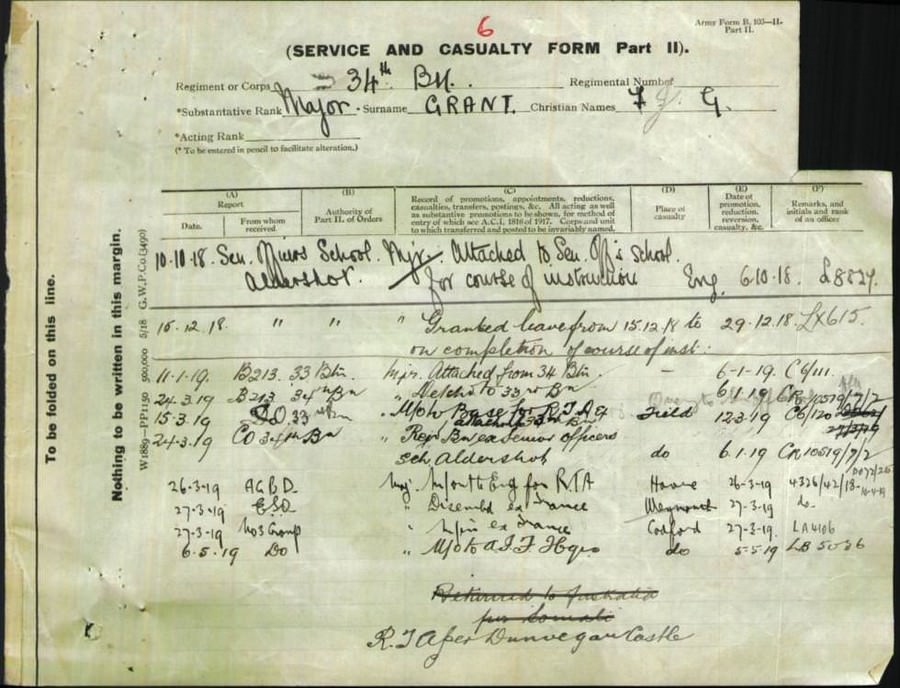 6
Army Form B. 103—II.
Part II.
(SERVICE AND CASUALTY FORM Part II).
Regiment or Corps 34th Bn. Regimental Number
*Substantive Rank Major Surname GRANT. Christian Names F G.
*Acting Rank
(* To be entered in pencil to facilitate alteration.)
To be folded on this line.
Nothing to be written in this margin.
W1889—PP1150 500,000 5/18 G.W.P.Co.(3490)
(A) Report
Date. From whom received.
(B) Authority of Part II. of Orders
(C) Record of promotions, appointments, reductions, casualties, transfers, postings, &c. All acting as well as substantive promotions to be shown, for method of entry of which see A.C.I. 1816 of 1917. Corps and unit to which transferred and posted to be invariably named.
(D) Place of casualty
(E) Date of promotion, reduction, reversion, casualty, &c.
(F) Remarks, and initials and rank of an officer
10.10.18. Sen. Officers School. Mjr. Attached to Sen. Off's school.
Aldershot. for course of instruction Eng. 6.10.18. £8827.
15.12.18. " " " Granted leave from 15.12.18 to 29.12.18. LX615.
on completion of course of inst:
11.1.19. B213. 33 Btn. Mjr. Attached from 34 Btn. — 6-1-19. C6/111
24.3.19 B213 34th Bn " Detchd to 33rd Bn 6.1.19 CR 10519/7/2
15.3.19 CO. 33rd Bn Field 12.3.19 C6/120
24.3.19 CO 34th Bn " Rejd Bn ex Senior officers
Sch Aldershot do 6.1.19 CR 10519/7/2
26-3-19 AGBD. Maj. M to Eng for RTA Havre 26-3-19 4326/42/18
27-3-19 " Disembd ex France Weymouth 27-3-19 do
27-3-19 No3 Group " M/in ex France Codford 27-3-19 LA4106
6.5.19 Do " M/o to A.I.F. Hqrs do 5-5-19 LB 5036
Returned to Australia
per Somali
R.T.A per Dunvegan Castle